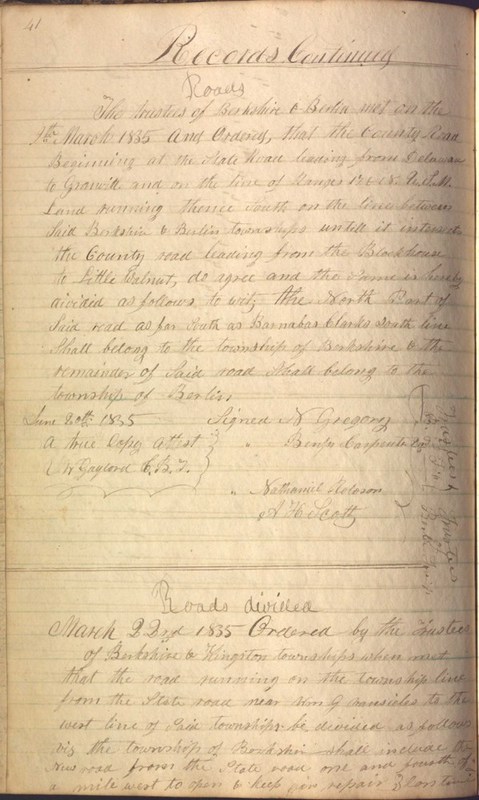 41
Records Continued
Roads
The trustees of Berkshire & Berlin met on the
7th March 1835 And Ordered, that the County Road
Beginning at the State Road leading from Delaware
to Granvill and on the line of Ranges 17 & 18 U.S.M.
Land running thence South on the line between
Said Berkshire & Berlin townships untill it intersects
the County road leading from the Blockhouse
to Little Walnut, do agree and the Same is hereby
divided as follows to wit, the North Part of
Said road as far South as Barnabas Clarks South line
Shall belong to the township of Berkshire & the
remainder of Said road Shall belong to the
township of Berlin
June 20th 1835 Signed N Gregory
A true Copy Attest " Benjn Carpenter
W Gaylord C.B.T.
" Nathaniel Roloson
A H Scott
Trustees
Roads divided
March 22nd 1835 Ordered by the Trustees
of Berkshire & Kingston townships when meet
that the road running on the township line
from the State road near
to the
west line of Said townships be divided as follows
viz the township of Berkshire shall include the
new road from the State road one and fourth of
a mile west to open & keep in repair &